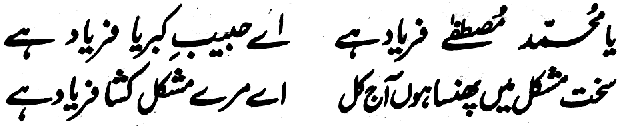 یا محمّد مُصطفےٰ فریاد ہے اے حبیبِ کبریا فریاد ہے
سخت مشکل میں پھنسا ہوں آج کل اے مرے مشکل کشا فریاد ہے